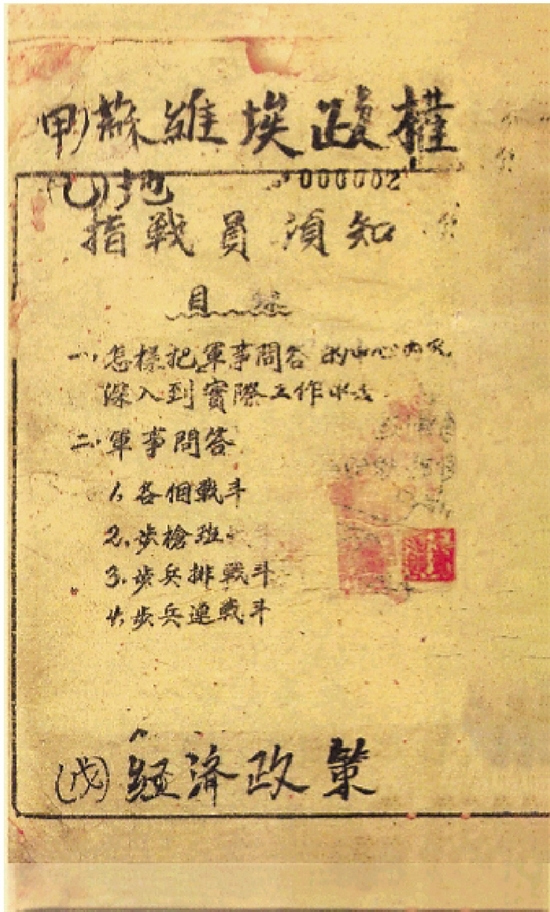 (甲)蘇維埃政權
(乙)地
000002
指戰員須知
目錄
一、怎樣把軍事問答的中心內容
深入到實際工作中去
二、軍事問答
1、各個戰斗
2、步槍班戰斗
3、步兵排戰斗
4、步兵連戰斗
(戊)經濟政策